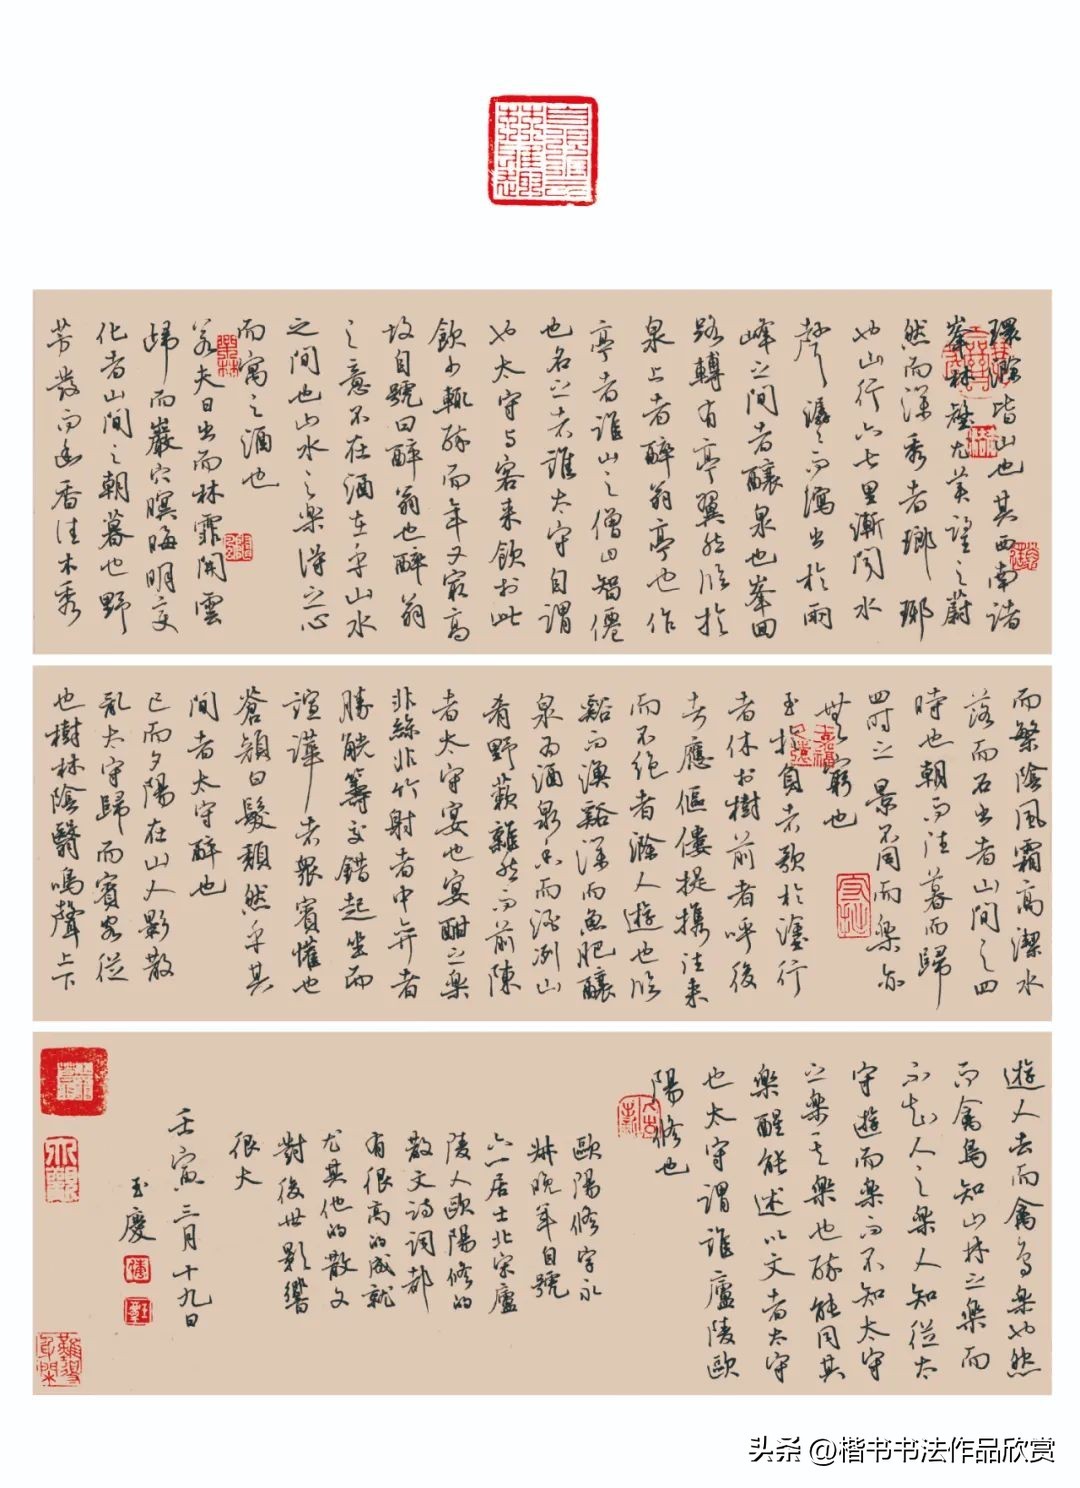 環滁皆山也其西南諸
峯林壑尤美望之蔚
然而深秀者瑯琊
也山行六七里漸闻水
聲潺々而瀉出於兩
峰之間者釀泉也峯回
路轉有亭翼然临於
泉上者醉翁亭也作
亭者誰山之僧曰智僊
也名之者誰太守自謂
也太守与客来飲於此
飲少輒醉而年又最高
故自號曰醉翁也醉翁
之意不在酒在乎山水
之間也山水之樂得之心
而寓之酒也
若夫日出而林霏開雲
歸而巖穴暝晦明变
化者山間之朝暮也野
芳发而幽香佳木秀
而繁陰風霜高潔水
落而石出者山間之四
時也朝而往暮而歸
四时之景不同而樂亦
無窮也
至於負者歌於塗行
者休於樹前者呼後
者應傴僂提攜往来
而不绝者滁人遊也临
谿而漁谿深而魚肥釀
泉为酒泉香而酒洌山
肴野蔌雜然而前陳
者太守宴也宴酣之樂
非絲非竹射者中弈者
勝觥籌交錯起坐而
諠譁者衆賓懽也
蒼顏白髮頹然乎其
間者太守醉也
已而夕陽在山人影散
亂太守歸而賓客從
也樹林陰翳鳴聲上下
遊人去而禽鸟樂也然
而禽鳥知山林之樂而
不知人之樂人知從太
守遊而樂而不知太守
之樂其樂也醉能同其
樂醒能述以文者太守
也太守謂誰廬陵歐
陽修也
歐陽修字永
叔晚年自號
六一居士北宋廬
陵人歐陽修的
散文詩詞都
有很高的成就
尤其他的散文
對後世影響
很大
壬寅三月十九日
玉慶
头条 @楷书书法作品欣赏